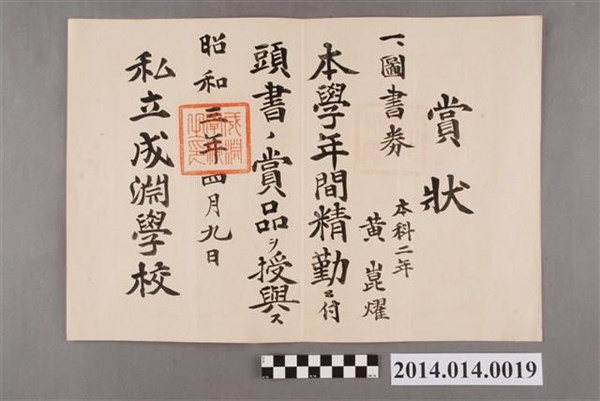 賞狀
一、圖書券
本科二年
黄崑燿
本學年間精勤ニ付
頭書ノ賞品ヲ授與ス
昭和三年四月九日
私立成淵學校
2014.014.0019